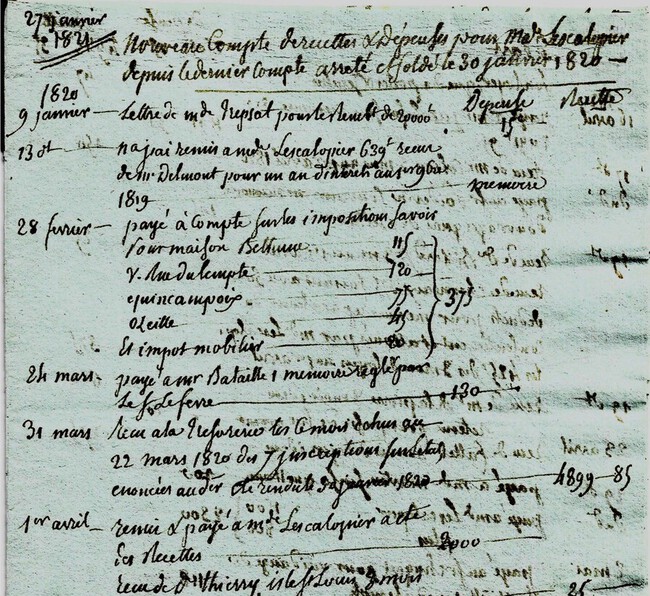 27 janvier
1821
Nouveau Compte de recettes & Dépenses pour Mde Lescalopier
depuis le dernier Compte arreté & soldé le 30 janvier 1820 —
1820 Dépense Recette
9 janvier — Lettre de mde pour le Rembt de 20000 15
13 dt — n a j'ai remis a mde Lescalopier 639 recu
de mr Delmont pour un an d'interets au
1819 — memoire
28 fevrier — payé à Compte sur les impositions savoir
Pour maison Bethune 115
v. Rue du temple — 120
quincampoix — 77
Ozeille — 45
Et impot mobilier — 375
24 mars payé a mr Bataille 1 memoire reglé par
Le Sr Lefevre — 130
31 mars Recu a la Tresorerie les 6 mois echus
22 mars 1820 des 7 inscriptions
enoncées au dr Cte rendu le janvier 1820 — 4899 — 85
1er avril — remis & payé a mde Lescalopier a cte
des Recettes — 2000
recu de Dr thierry, isle St Louis 3 mois